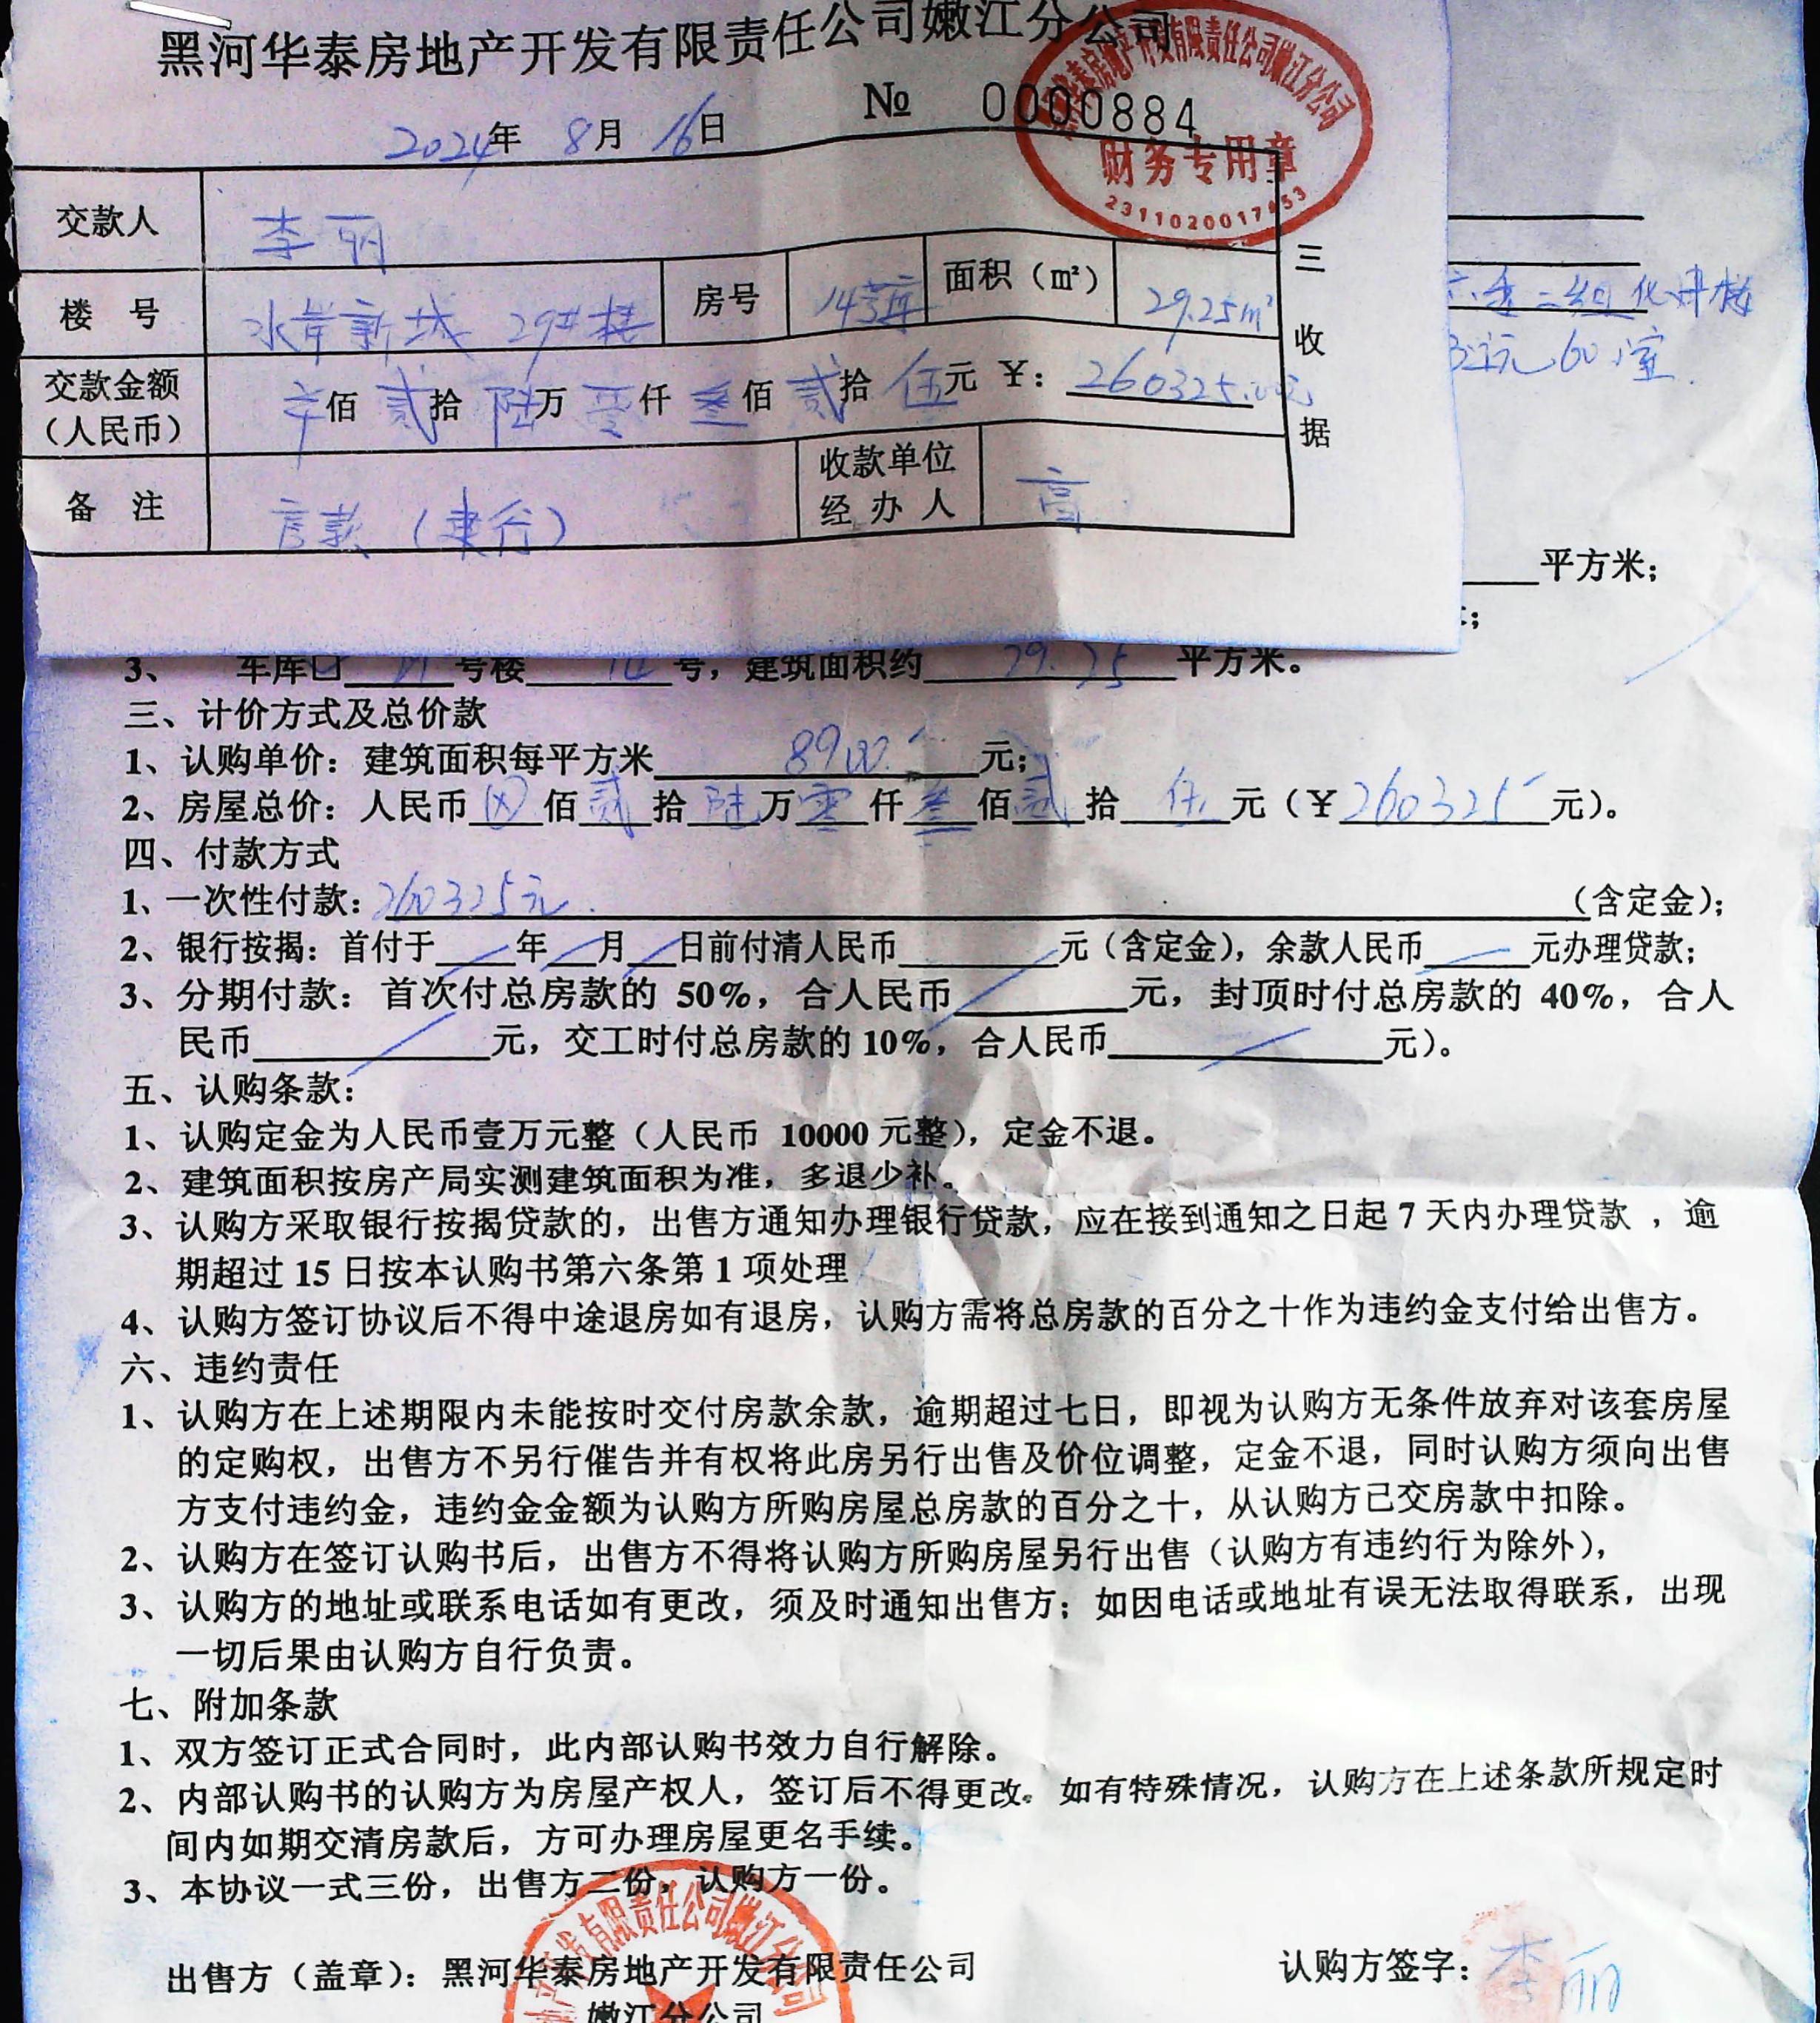 黑河华泰房地产开发有限责任公司嫩江分公司
№ 0000884
2024年 8月 16日
财务专用章
交款人 李丽
楼 号 水岸新城 29#楼 房号 14号库 面积（㎡） 29.25m²
交款金额（人民币） 佰 贰拾 陆万 零仟 叁佰 贰拾 伍元 ￥：260325.00元
备 注 房款（建行） 收款单位经办人 高
三
收
据
平方米；
3、 车库☑ 号楼 14 号，建筑面积约 29.25 平方米。
三、计价方式及总价款
1、认购单价：建筑面积每平方米 8900 元；
2、房屋总价：人民币 ⊗ 佰 贰 拾 陆 万 零 仟 叁 佰 贰 拾 伍 元（￥260325元）。
四、付款方式
1、一次性付款：260325元.（含定金）；
2、银行按揭：首付于 年 月 日前付清人民币 元（含定金），余款人民币 元办理贷款；
3、分期付款：首次付总房款的 50%，合人民币 元，封顶时付总房款的 40%，合人
民币 元，交工时付总房款的 10%，合人民币 元）。
五、认购条款：
1、认购定金为人民币壹万元整（人民币 10000 元整），定金不退。
2、建筑面积按房产局实测建筑面积为准，多退少补。
3、认购方采取银行按揭贷款的，出售方通知办理银行贷款，应在接到通知之日起 7 天内办理贷款 ，逾
期超过 15 日按本认购书第六条第 1 项处理
4、认购方签订协议后不得中途退房如有退房，认购方需将总房款的百分之十作为违约金支付给出售方。
六、违约责任
1、认购方在上述期限内未能按时交付房款余款，逾期超过七日，即视为认购方无条件放弃对该套房屋
的定购权，出售方不另行催告并有权将此房另行出售及价位调整，定金不退，同时认购方须向出售
方支付违约金，违约金金额为认购方所购房屋总房款的百分之十，从认购方已交房款中扣除。
2、认购方在签订认购书后，出售方不得将认购方所购房屋另行出售（认购方有违约行为除外），
3、认购方的地址或联系电话如有更改，须及时通知出售方；如因电话或地址有误无法取得联系，出现
一切后果由认购方自行负责。
七、附加条款
1、双方签订正式合同时，此内部认购书效力自行解除。
2、内部认购书的认购方为房屋产权人，签订后不得更改。如有特殊情况，认购方在上述条款所规定时
间内如期交清房款后，方可办理房屋更名手续。
3、本协议一式三份，出售方二份，认购方一份。
出售方（盖章）：黑河华泰房地产开发有限责任公司
嫩江分公司
认购方签字：李丽